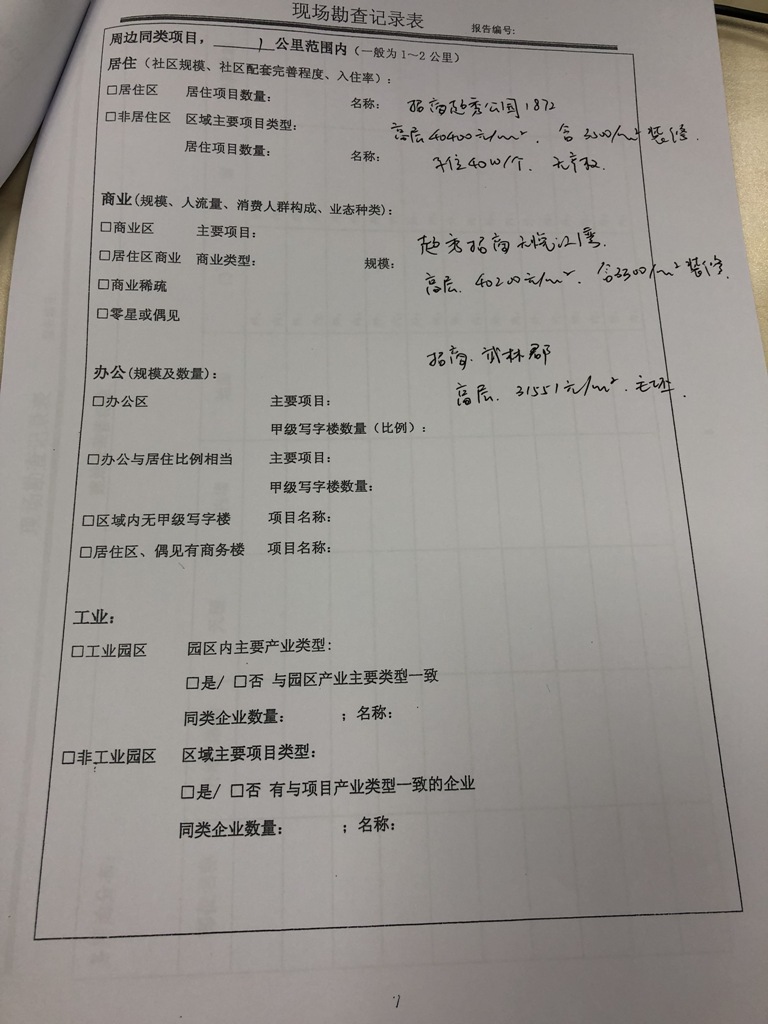 现场勘查记录表
报告编号:
周边同类项目, 1 公里范围内(一般为1~2公里)
居住(社区规模、社区配套完善程度、入住率):
□居住区 居住项目数量: 名称: 招商越秀公园1872
□非居住区 区域主要项目类型: 高层40400元/m² 、含3500/m²装修.
居住项目数量: 名称: 车位40W/个、无产权.
商业(规模、人流量、消费人群构成、业态种类):
□商业区 主要项目: 越秀招商天悦江湾.
□居住区商业 商业类型: 规模: 高层、40200元/m²、含3300/m²装修.
□商业稀疏
□零星或偶见
招商·武林郡
办公(规模及数量): 高层、31551元/m²、毛坯.
□办公区 主要项目:
甲级写字楼数量(比例):
□办公与居住比例相当 主要项目:
甲级写字楼数量:
□区域内无甲级写字楼 项目名称:
□居住区、偶见有商务楼 项目名称:
工业:
□工业园区 园区内主要产业类型:
□是/ □否 与园区产业主要类型一致
同类企业数量: ;名称:
□非工业园区 区域主要项目类型:
□是/ □否 有与项目产业类型一致的企业
同类企业数量: ;名称: